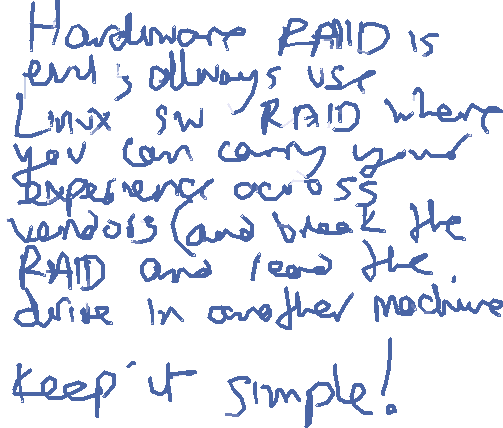 Hardware RAID is
evil, always use
Linux sw RAID where
you can carry your
experience across
vendors (and break the
RAID and read the
drive in another machine
Keep it simple!